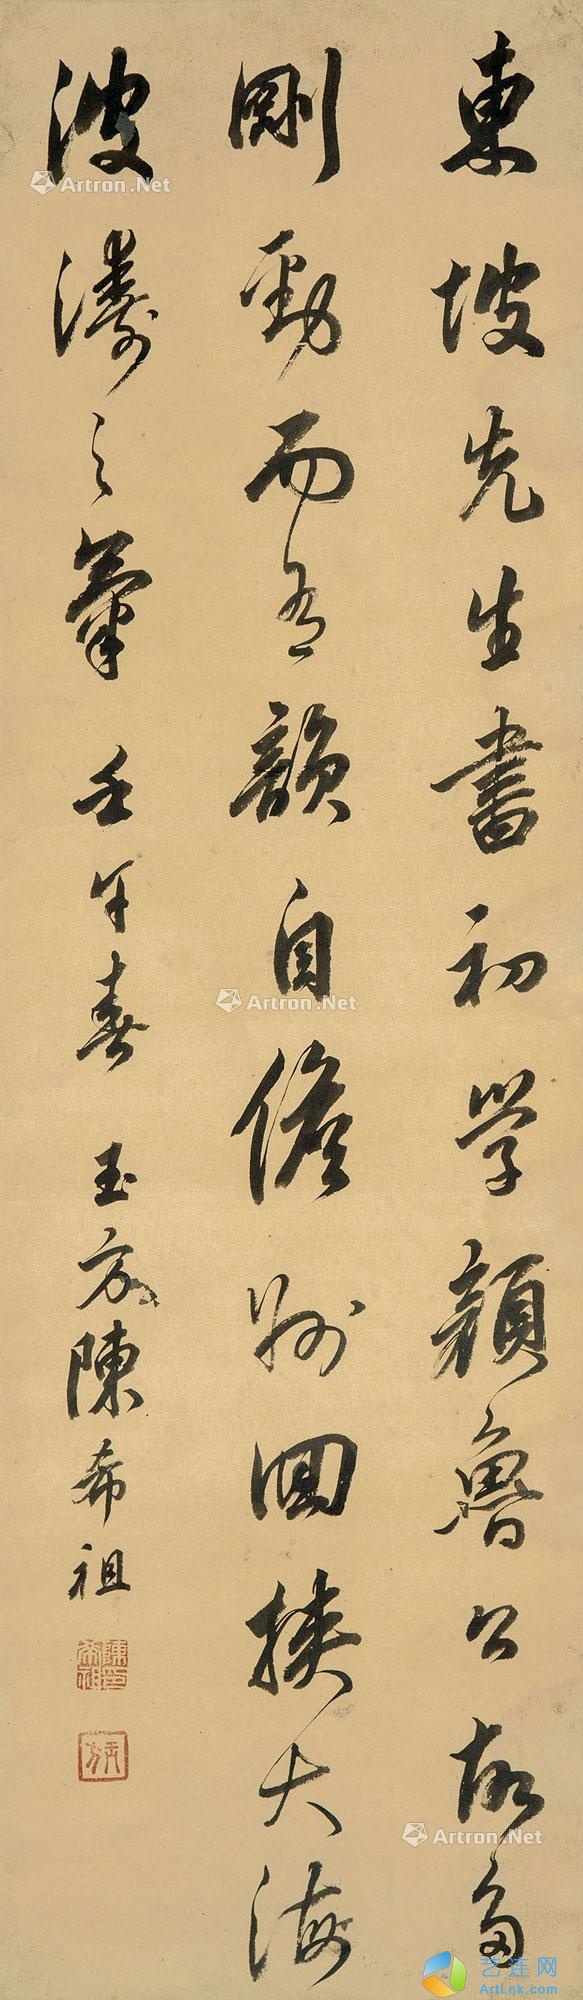 東坡先生書初學顏魯公故多
剛勁而有韻自儋州回挾大海
波濤之氣 壬午春 玉方陳希祖
陳印希祖
玉方
Artron.Net
Artron.Net
Artron.Net
Artron.Net
艺连网
ArtLnk.com